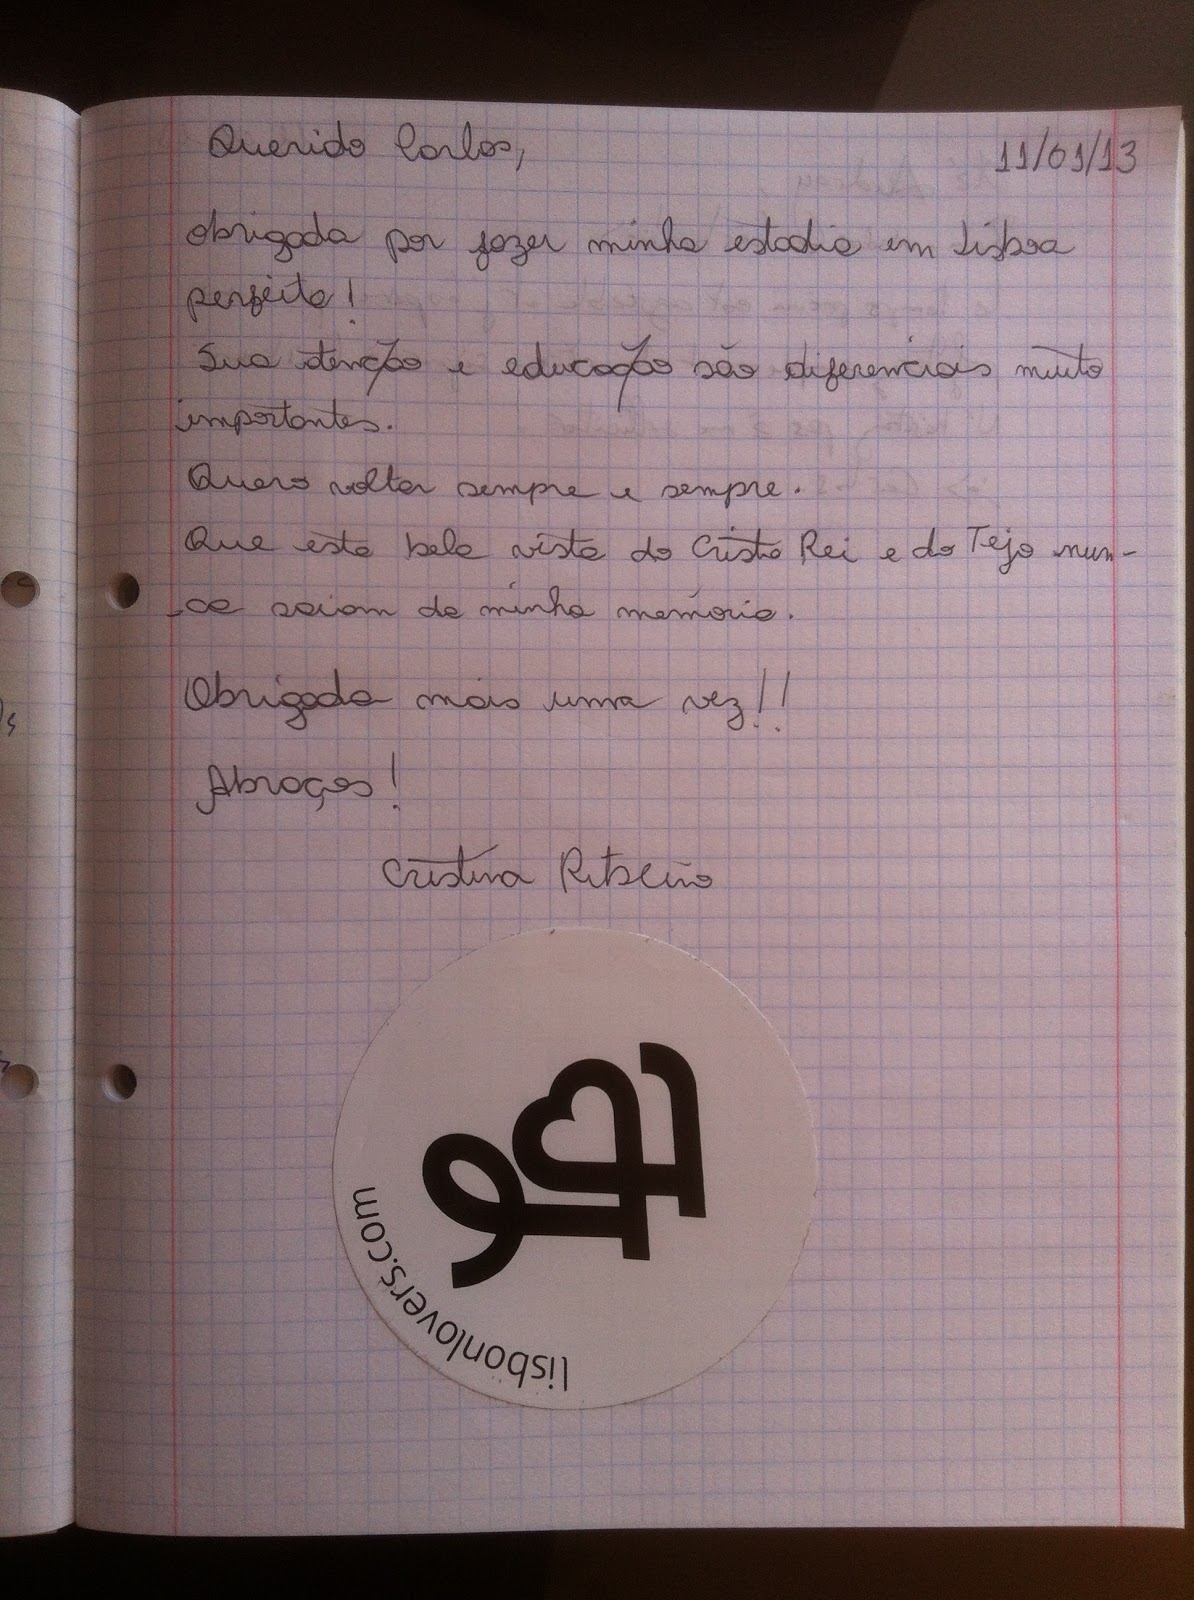 Querido Carlos,
11/01/13
obrigada por fazer minha estadia em Lisboa
perfeita!
Sua atenção e educação são diferenciais muito
importantes.
Quero voltar sempre e sempre.
Que esta bela vista do Cristo Rei e do Tejo nun-
-ca saiam da minha memória.
Obrigada mais uma vez!!
Abraços!
Cristina Ribeiro
lisbonlovers.com